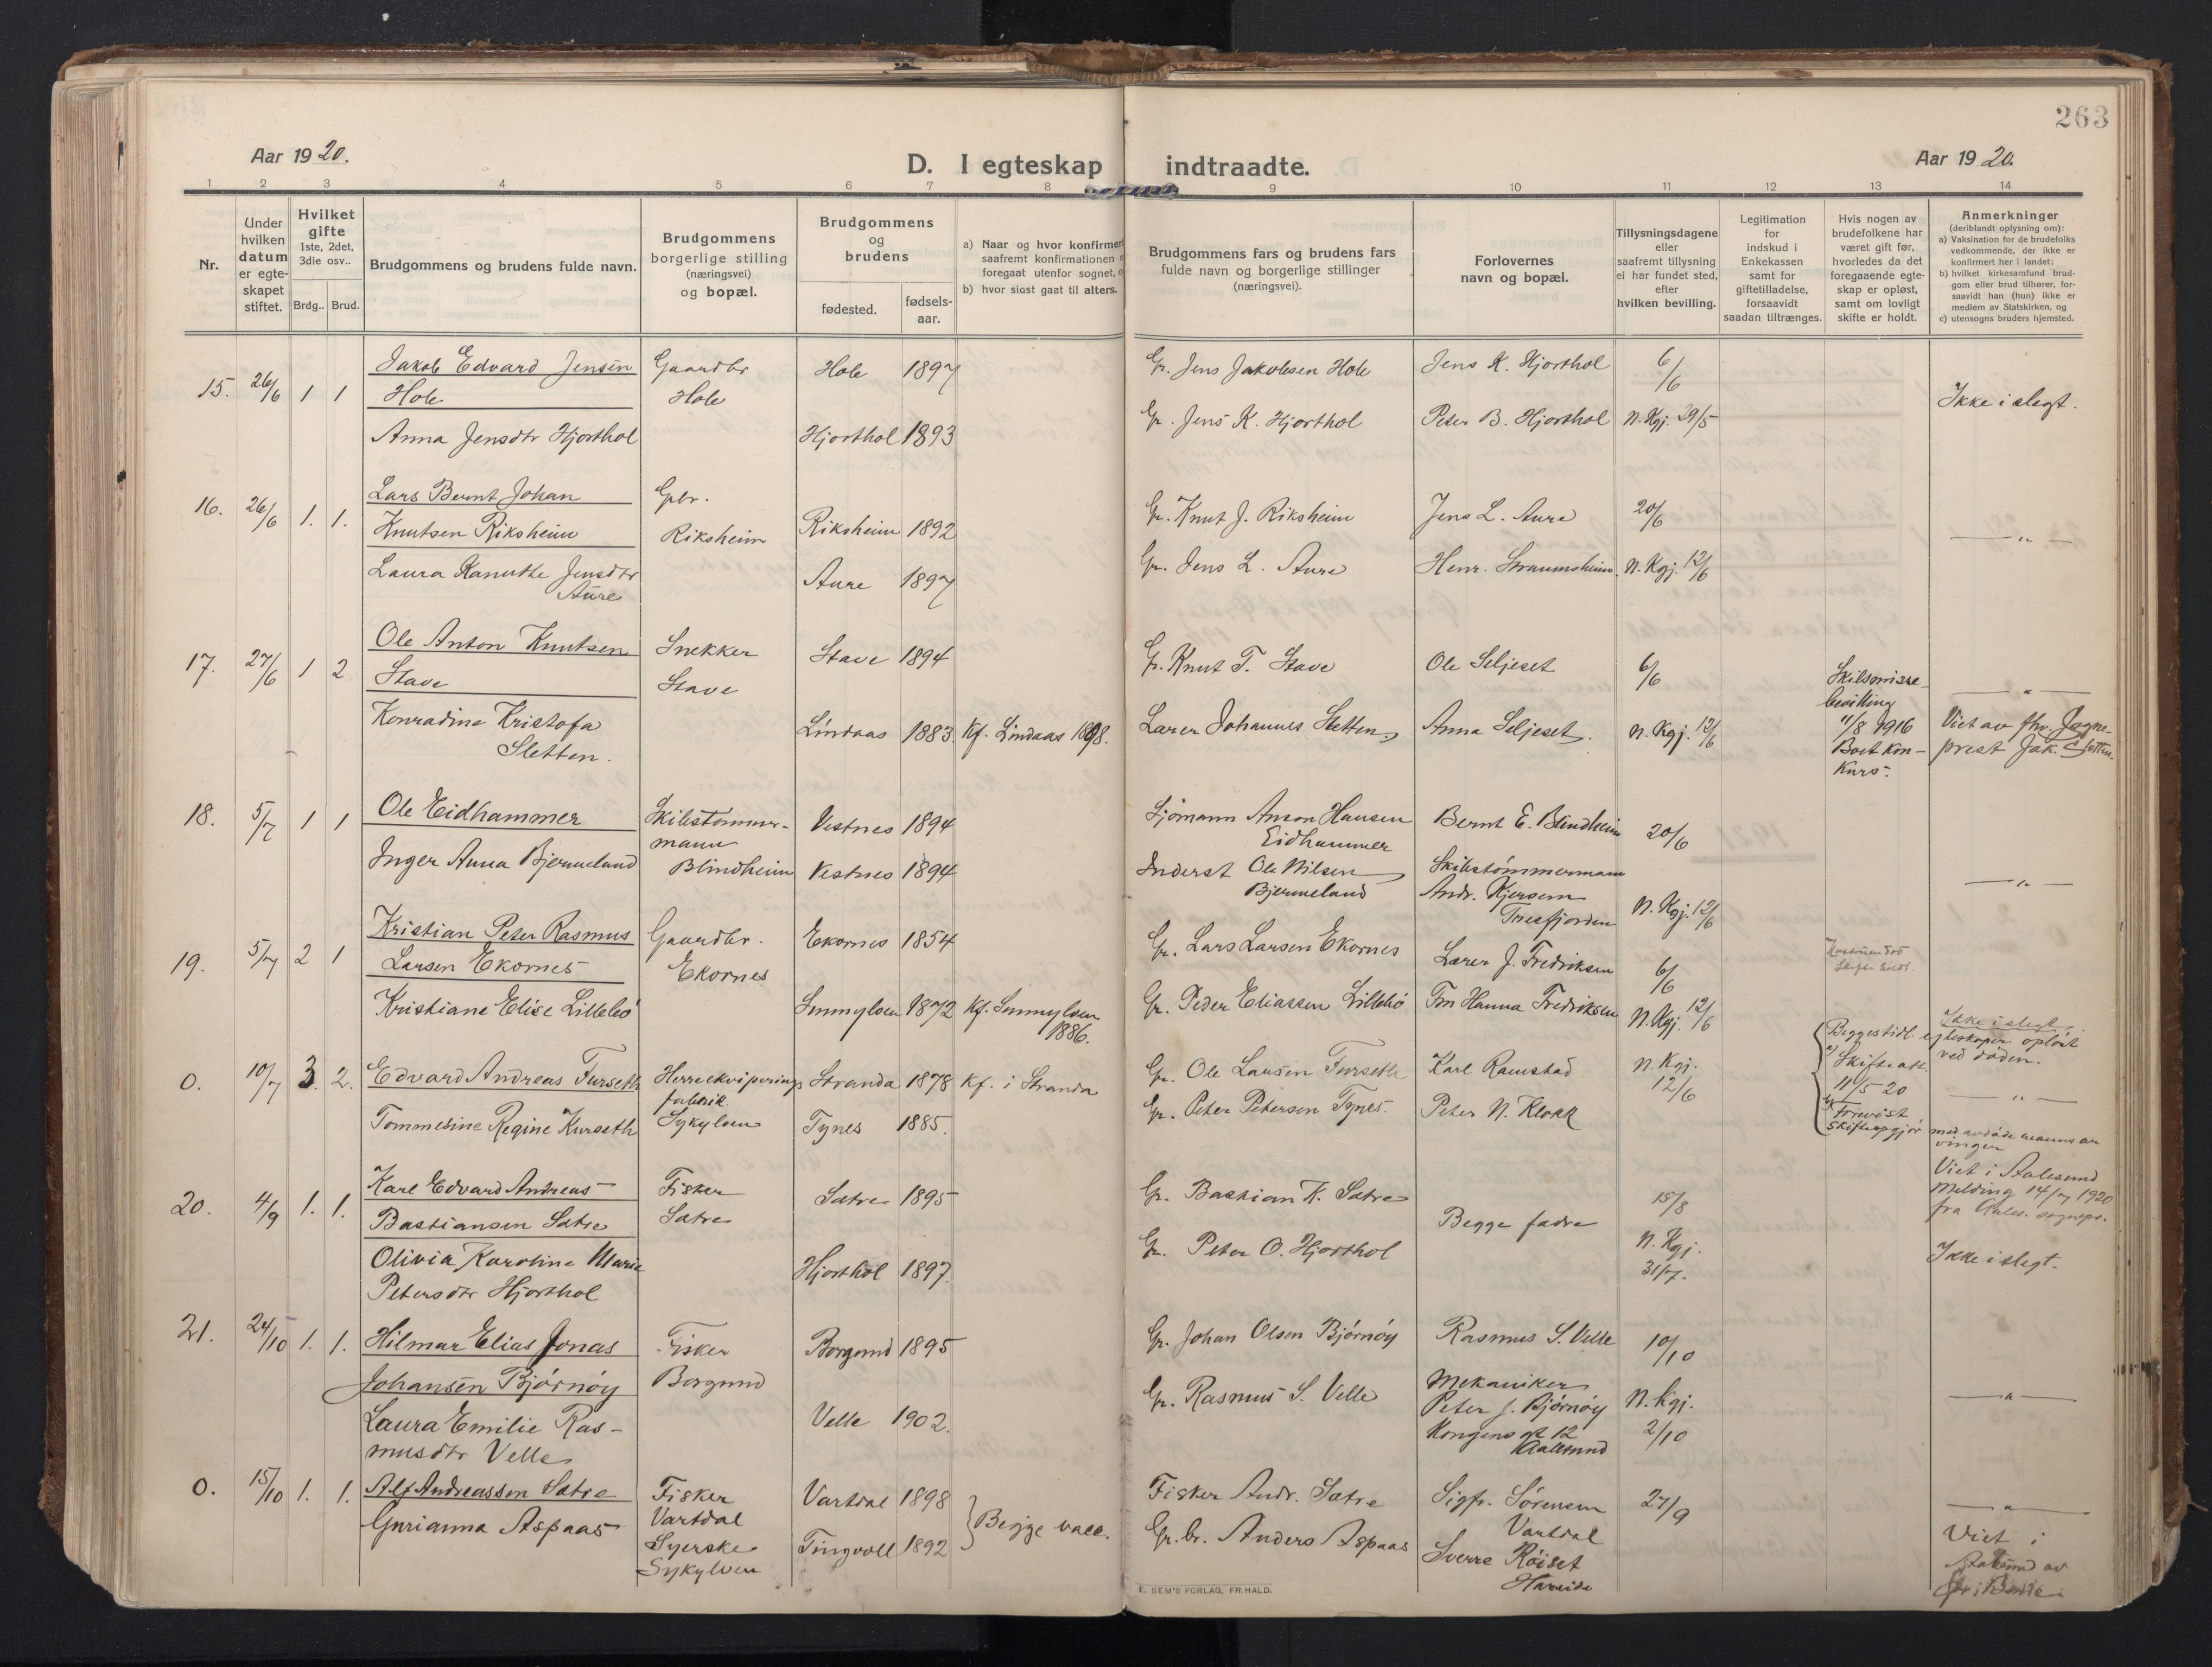 263
Aar 1920.
D. I egteskap indtraadte.
Aar 1920.
1 2 3 4 5 6 7 8 9 10 11 12 13 14
Nr.
Under hvilken datum er egte-skapet stiftet.
Hvilket gifte 1ste, 2det, 3die osv..
Brdg.. Brud.
Brudgommens og brudens fulde navn.
Brudgommens borgerlige stilling (næringsvei) og bopæl.
Brudgommens og brudens
fødested.
fødsels-aar.
a) Naar og hvor konfirmer
saafremt konfirmationen
foregaat utenfor sognet,
b) hvor sidst gaat til alters.
Brudgommens fars og brudens fars
fulde navn og borgerlige stillinger
(næringsvei).
Forlovernes
navn og bopæl.
Tillysningsdagene
eller
saafremt tillysning
ei har fundet sted,
efter
hvilken bevilling.
Legitimation
for
indskud i
Enkekassen
samt for
giftetilladelse,
forsaavidt
saadan tiltrænges.
Hvis nogen av
brudefolkene har
været gift før,
hvorledes da det
foregaaende egte-
skap er opløst,
samt om lovligt
skifte er holdt.
Anmerkninger
(deriblandt oplysning om):
a) Vaksination for de brudefolks
vedkommende, der ikke er
konfirmert her i landet;
b) hvilket kirkesamfund brud-
gom eller brud tilhører, for-
saavidt han (hun) ikke er
medlem av Statskirken, og
c) utensogns bruders hjemsted.
15. 26/6 1 1 Jakob Edvard Jensen Gaardbr Hole 1897 Gr. Jens Jakobsen Hole Jens K. Hjorthol 6/6
Hole Hole Ikke i slegt.
Anna Jensdtr Hjorthol Hjorthol 1893 Gr. Jens K. Hjorthol Peter B. Hjorthol N. Kgj. 29/5
16. 26/6 1. 1. Lars Bernt Johan Gbr.
Knutsen Riksheim Riksheim Riksheim 1892 Gr. Knut J. Riksheim Jens L. Aure 20/6
— " —
Laura Kanutte Jensdtr Aure 1897 Gr. Jens L. Aure Henr. Straumsheim. N. Kgj. 12/6
Aure
17. 27/6 1 2 Ole Anton Knutsen Snekker Stave 1894 Gr. Knut T. Stave Ole Seljeset 6/6
Stave Stave
Skilsmisse-
bevilling
— " —
Konradine Kristofa Lindaas 1883. Kf. Lindaas 1898. Lærer Johannes Sletten Anna Seljeset. N. Kgj. 12/6
Sletten.
11/8 1916
Boet kon-
kurs.
Viet av fhv. Sogne-
prest Jak. Sletten.
18. 5/7 1 1 Ole Eidhammer Skibstømmer-
mann
Blindheim
Vestnes 1894 Sjømann Anton Hansen
Eidhammer
Bernt E. Blindheim 20/6
Inger Anna Bjermeland Vestnes 1894 Inderst Ole Nilsen
Bjermeland
Skibstømmermann
Andr. Kjersem
Tresfjorden
N. Kgj. 12/6
— " —
19. 5/7 2 1 Kristian Peter Rasmus Gaardbr. Ekornes 1854 Gr. Lars Larsen Ekornes Lærer J. Fredriksen 6/6
Larsen Ekornes Ekornes
Kristiane Elise Lillebø Sunnylven 1872 Kf. Sunnylven
1886.
Gr. Peder Eliassen Lillebø Fru Hanna Fredriksen N. Kgj. 12/6
Ikke i slegt
0. 10/7 3. 2. Edvard Andreas Furseth Herreekviperings
fabrik
Sykylven
Stranda 1878 Kf. i Stranda Gr. Ole Larsen Furseth Karl Ramstad N. Kgj.
12/6
Tommesine Regine Kurseth Tynes 1885. Gr. Peter Petersen Tynes. Peter N. Klokk
Begges tidl. egteskaper opløst
ved døden.
a) Skifteatt.
11/5 20
b) Forevist
skifteopgjør med avdøde manns ar
vinger
— " —
Viet i Aalesund
Melding 14/7 1920
fra Aales. sognepr.
20. 4/9 1. 1. Karl Edvard Andreas Fisker Satre 1895 Gr. Bastian K. Satre Begge fædre 15/8
Bastiansen Satre Satre
Olivia Karoline Marie Hjorthol 1897. Gr. Peter O. Hjorthol N. Kgj.
31/7.
Petersdtr Hjorthol
Ikke i slegt.
21. 24/10 1. 1. Hilmar Elias Jonas Fisker Borgund 1895 Gr. Johan Olsen Bjørnøy Rasmus S. Velle 10/10
Johansen Bjørnøy Borgund
Laura Emilie Ras-
musdtr Velle
Velle 1902. Gr. Rasmus S. Velle Mekaniker
Peter J. Bjørnøy
Kongens gt 12
Aalesund
N. Kgj.
2/10
— " —
0. 15/10 1. 1. Alf Andreassen Satre Fisker
Vartdal
Vartdal 1898 Fisker Andr. Satre Sigfr. Sørensen
Vartdal
27/9
— " —
Gurianna Aspaas Syerske
Sykylven
Tingvoll 1892 Begge vacc. Gr. br. Anders Aspaas Sverre Røiset
Hareide
Viet i
Aalesund av
E. SEM'S FORLAG, FR.HALD.